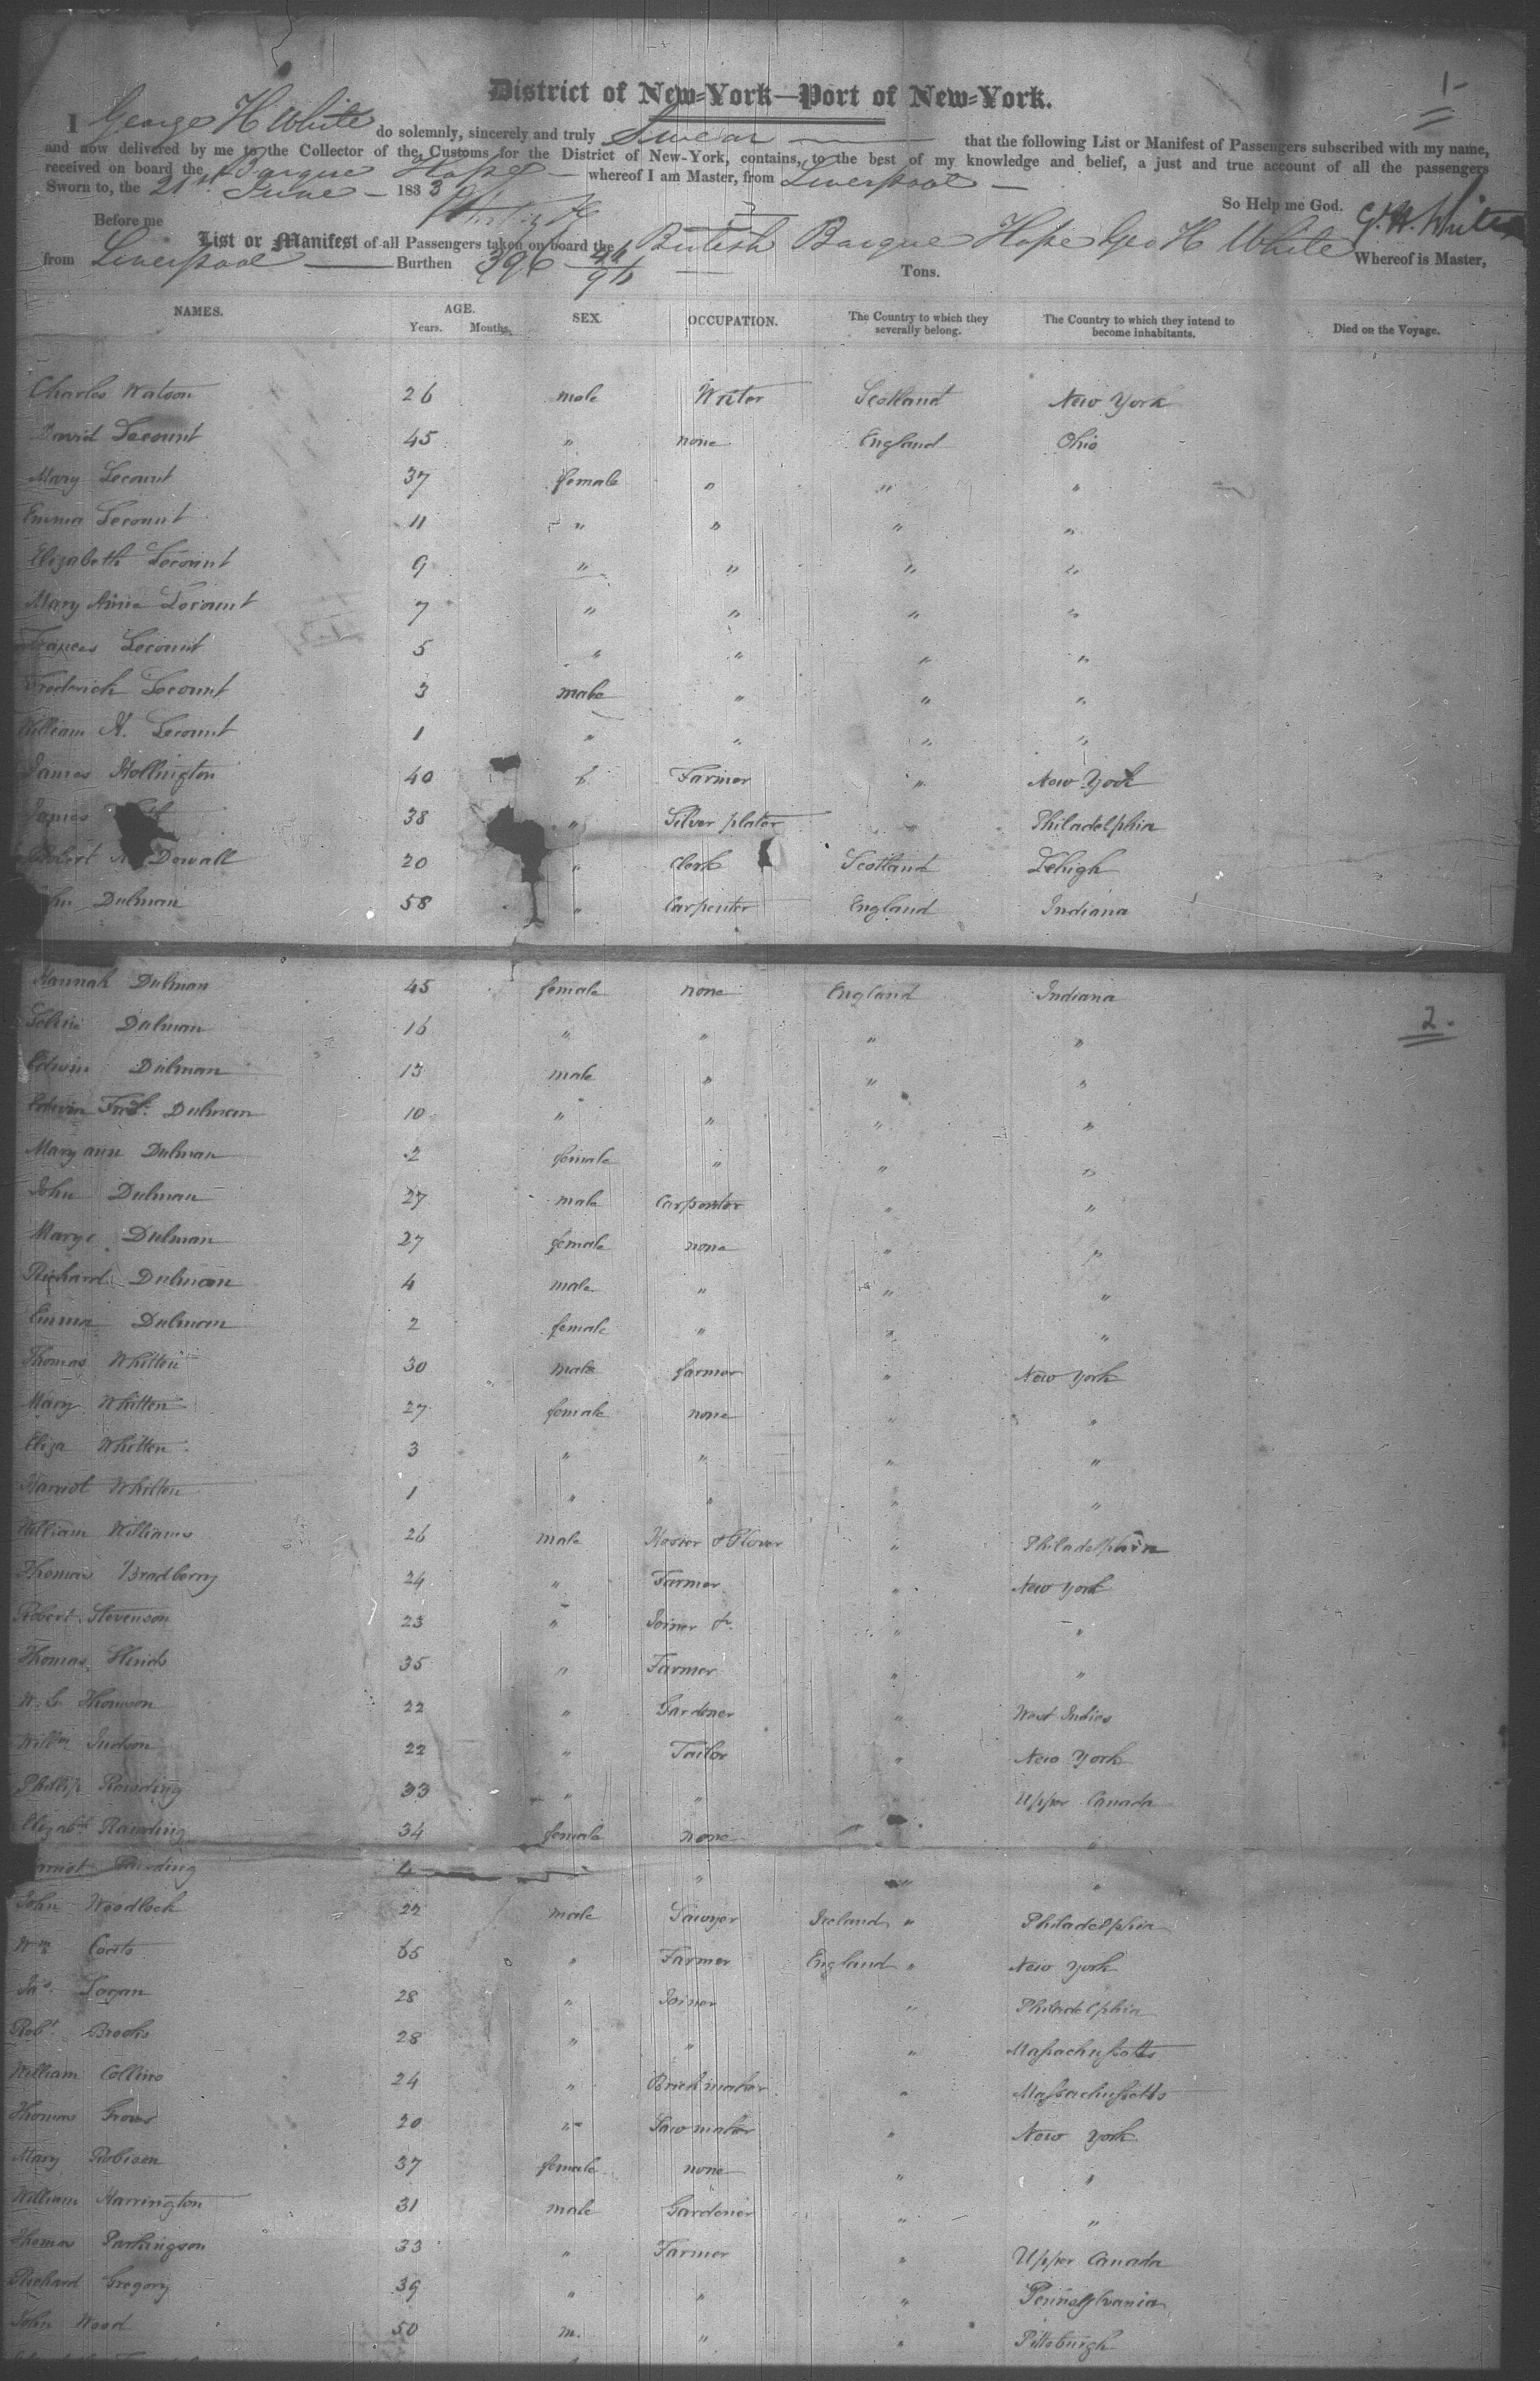 1-
District of New-York—Port of New-York.
I George H White do solemnly, sincerely and truly Swear that the following List or Manifest of Passengers subscribed with my name,
and now delivered by me to the Collector of the Customs for the District of New-York, contains, to the best of my knowledge and belief, a just and true account of all the passengers
received on board the Barque Hope whereof I am Master, from Liverpool
Sworn to, the 21st June 1833 So Help me God. G. H. White
Before me
List or Manifest of all Passengers taken on board the British Barque Hope Geo H White Whereof is Master,
from Liverpool Burthen 396 Tons.
NAMES. AGE. Years. Months. SEX. OCCUPATION. The Country to which they severally belong. The Country to which they intend to become inhabitants. Died on the Voyage.
Charles Watson 26 male Writer Scotland New York
David Lecount 45 " none England Ohio
Mary Lecount 37 female " " "
Emma Lecount 11 " " " "
Elizabeth Lecount 9 " " " "
Mary Anne Lecount 7 " " " "
Frances Lecount 5 " " " "
Frederick Lecount 3 male " " "
William H. Lecount 1 " " " "
James Hollington 40 " Farmer " New York
James 38 " Silver plater " Philadelphia
Robert Mc Dowall 20 " Clerk Scotland Lehigh
John Dulman 58 " Carpenter England Indiana
2.
Hannah Dulman 45 female none England Indiana
Dulman 16 " " " "
Edwin Dulman 13 male " " "
Edwin Dulman 10 " " " "
Mary ann Dulman 2 female " " "
John Dulman 27 male Carpenter " "
Mary Dulman 27 female none " "
Richard Dulman 4 male " " "
Emma Dulman 2 female " " "
Thomas Whitten 30 male farmer " New York
Mary Whitten 27 female none " "
Eliza Whitten 3 " " " "
Harriot Whitten 1 " " " "
William Williams 26 male Hosier & Glover " Philadelphia
Thomas Bradberry 24 " Farmer " New York
Robert Stevenson 23 " Joiner &c. " "
Thomas Hinds 35 " Farmer " "
W. G. Thomson 22 " Gardener " West Indies
Willm Judson 22 " Tailor " New York
Phillip Rawding 33 " " " Upper Canada
Elizabth Rawding 34 female none " "
Harriot Rawding 4 " " "
John Woodlock 22 male Sawyer Ireland " Philadelphia
Wm Coats 65 " Farmer England " New York
Jas. Logan 28 " Joiner " Philadelphia
Robt. Brooks 28 " " " Massachussetts
William Collins 24 " Brickmaker " Massachussetts
Thomas Grows 20 " Saw maker " New York
Mary Robison 37 female none " "
William Harrington 31 male Gardener " "
Thomas Parkingson 33 " Farmer " Upper Canada
Richard Gregory 39 " " " Pennsylvania
John Wood 50 m. " " Pittsburgh